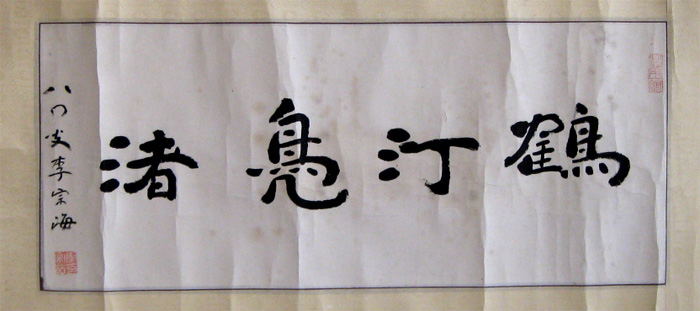 鶴汀鳧渚
八〇叟李宗海